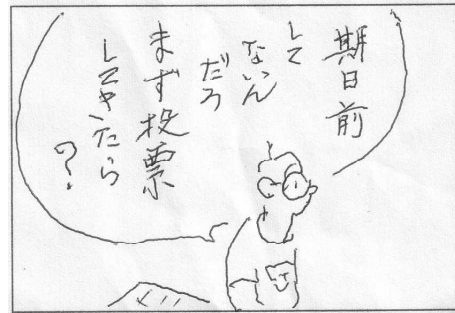 期日前
して
ないん
だろ
まず投票
してきたら
の?